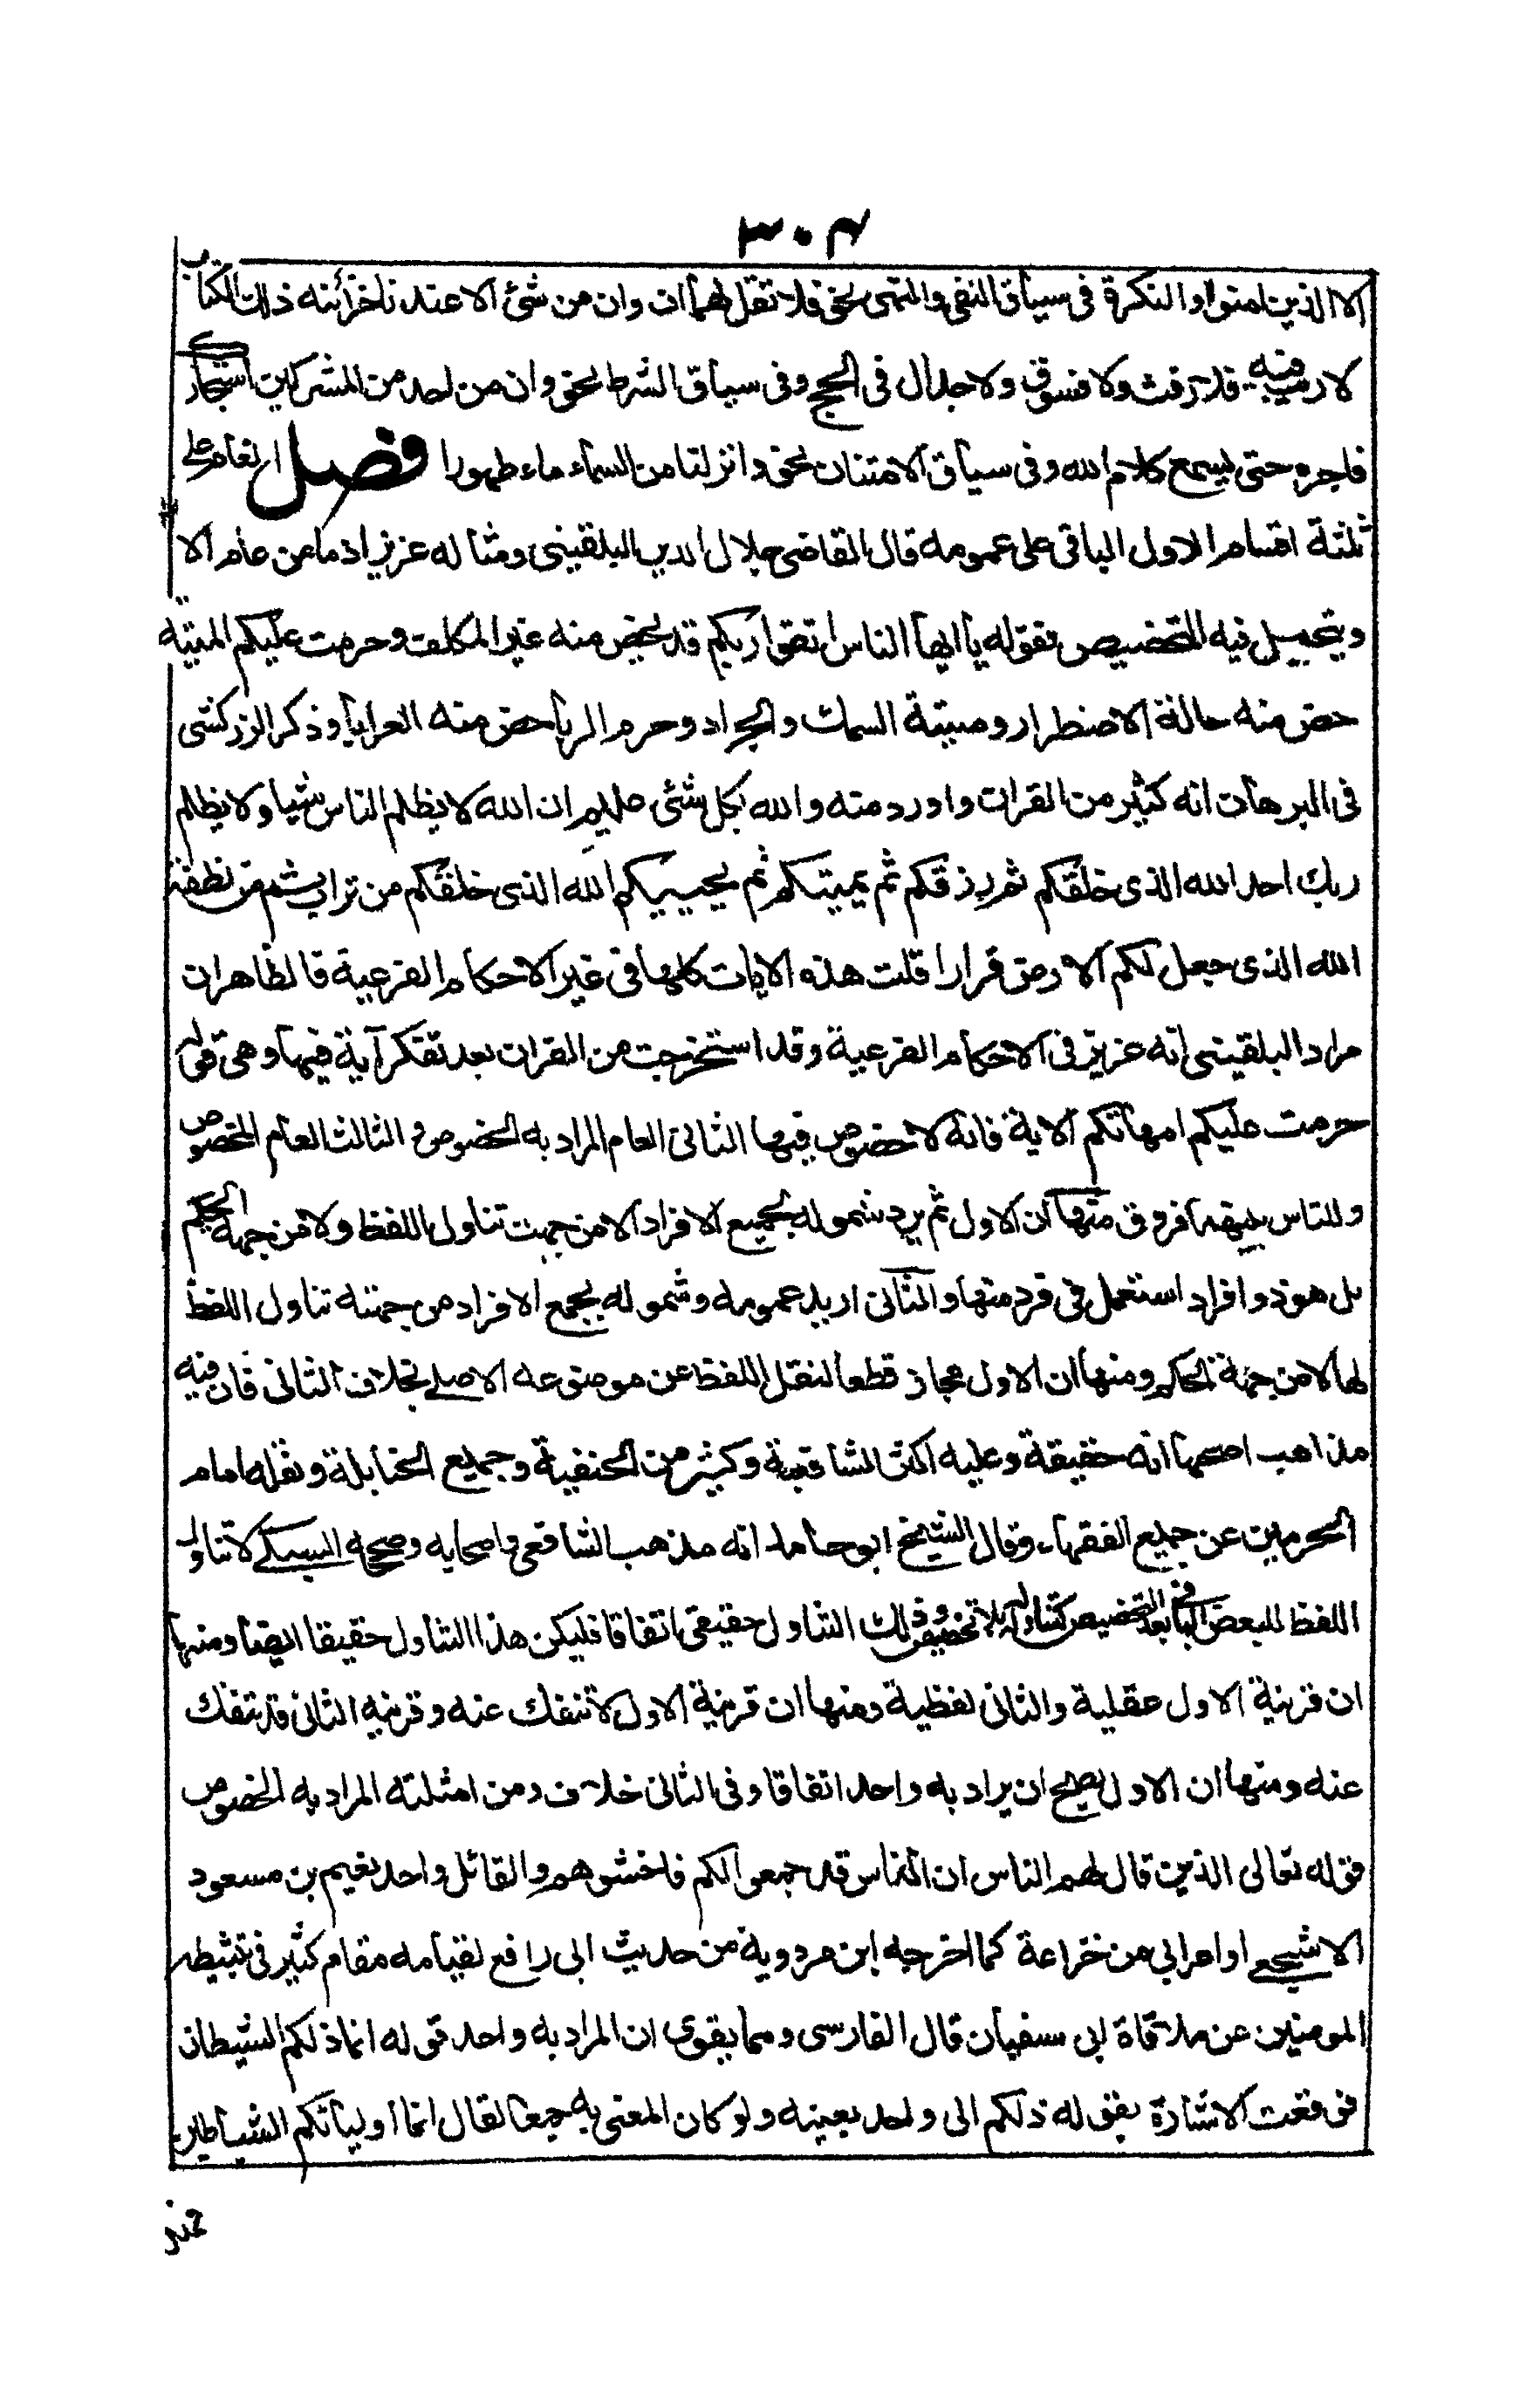 ٣٠٤
الا الذين امنوا والنكرة فى سياق النفى والنهى نحو فلا تقل لهما اف وان من شئ الا عندنا خزائنه ذلك الكتاب
لا ريب فيه فلا رفث ولا فسوق ولا جدال فى الحج وفى سياق الشرط نحو وان من احد من المشركين استجارك
فاجره حتى يسمع كلام الله وفى سياق الامتنان نحو وانزلنا من السماء ماء طهورا فصل العام على
ثلثة اقسام الاول الباقى على عمومه قال القاضى جلال الدين البلقينى ومثاله عزيز اذ ما من عام الا
ويتخيل فيه التخصيص فقوله يا ايها الناس اتقوا ربكم قد يخص منه غير المكلف وحرمت عليكم الميتة
خص منه حالة الاضطرار وميتة السمك والجراد وحرم الربا خص منه العرايا وذكر الزركشى
فى البرهان انه كثير من القران واورد منه والله بكل شئ عليم ان الله لا يظلم الناس شيا ولا يظلم
ربك احد الله الذى خلقكم ثم رزقكم ثم يميتكم ثم يحييكم الله الذى خلقكم من تراب ثم من نطفة
الله الذى جعل لكم الارض قرارا قلت هذه الايات كلها فى غير الاحكام الفرعية فالظاهر ان
مراد البلقينى انه عزيز فى الاحكام الفرعية وقد استخرجت من القران بعد تفكر آية فيها وهى قوله
حرمت عليكم امهاتكم الاية فانه لا خصوص فيها الثانى العام المراد به الخصوص و الثالث العام المخصوص
وللناس بينهما فروق منها ان الاول لم يرد شموله لجميع الافراد لا من جهت تناول اللفظ ولا من جهة الحكم
بل هو ذو افراد استعمل فى فرد منها والثانى اريد عمومه وشموله لجمع الافراد من جهته تناول اللفظ
لها لا من جهة الحكم ومنها ان الاول مجاز قطعا لنقل اللفظ عن موضوعه الاصلے بخلاف الثانى فان فيه
مذاهب اصحها انه حقيقة وعليه اكثر الشافعية وكثير من الحنفية وجميع الحنابلة ونقله امام
الحرمين عن جميع الفقهاء وقال الشيخ ابو حامد انه مذهب الشافعى واصحابه وصححه السبكے لا تناول
اللفظ للبعض الباقى بعد التخصيص كتناوله بلا تخصيص وذلك التناول حقيقى اتفاقا فليكن هذا التناول حقيقا ايضا ومنها
ان قرينة الاول عقلية والثانى لفظية ومنها ان قرينة الاول لا تنفك عنه وقرينه الثانى قد تنفك
عنه ومنها ان الاول يصح ان يراد به واحد اتفاقا وفى الثانى خلاف ومن امثلته المراد به الخصوص
قوله تعالى الذين قال لهم الناس ان الناس قد جمعوا لكم فاخشوهم والقائل واحد نعيم بن مسعود
الاشجعے او اعرابى من خزاعة كما اخرجه ابن مردوية من حديث ابى رافع لقيامه مقام كثير فى تثبيطه
المومنين عن ملاقاة ابى سفيان قال الفارسى ومما يقوى ان المراد به واحد قوله انما ذلكم الشيطان
فوقعت الاشارة بقوله ذلكم الى واحد بعينه ولو كان المعنى به جمعا لقال انما اوليائكم الشياطين